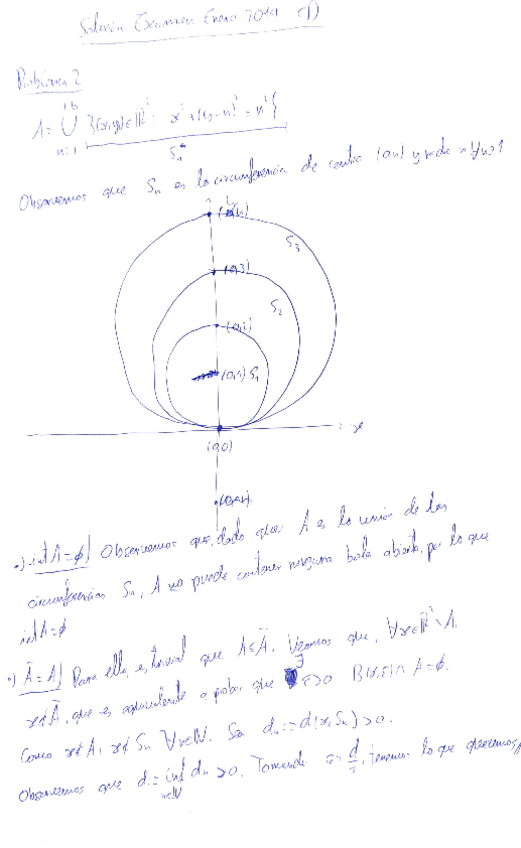 Solución Examen Enero 2019
Problema 2
A = ⋃ {(x,y)∈ℝ²: x²+(y-n)² = n²}
n=1
Sₙ
Observemos que Sₙ es la circunferencia de centro (0,n) y radio n
S₃
(0,3)
S₂
(0,2)
(0,1) S₁
x
(0,0)
•) int A = ϕ) Observemos que, dado que A es la unión de las
circunferencias Sₙ, A no puede contener ninguna bola abierta, por lo que
int A = ϕ
•) Ā = A) Para ello, es trivial que A⊆Ā. Veamos que, ∀x∈ℝ²\A,
x∉Ā, que es equivalente a probar que ∃ ε>0 B(x,ε)∩A=ϕ.
Como x∉A, x∉Sₙ ∀n∈ℕ. Sea dₙ := d(x,Sₙ) > 0.
Observemos que d = inf dₙ > 0. Tomando ε = d/2, tenemos lo que queremos
n∈ℕ